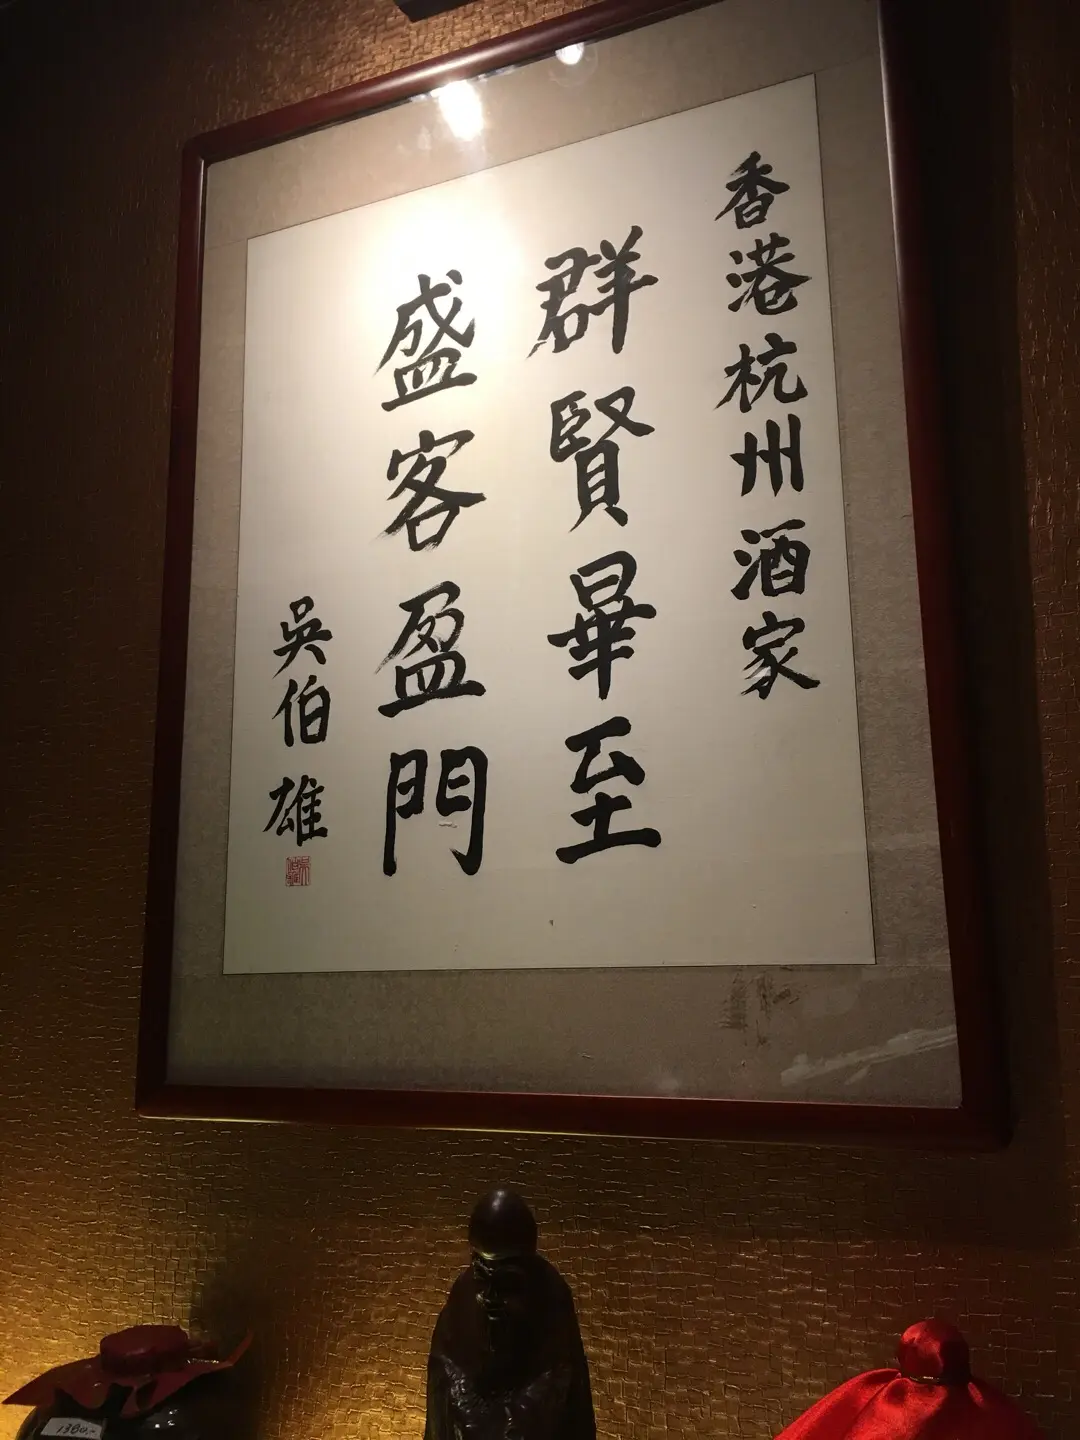 香港杭州酒家
群賢畢至
盛客盈門
吳伯雄
1380.-